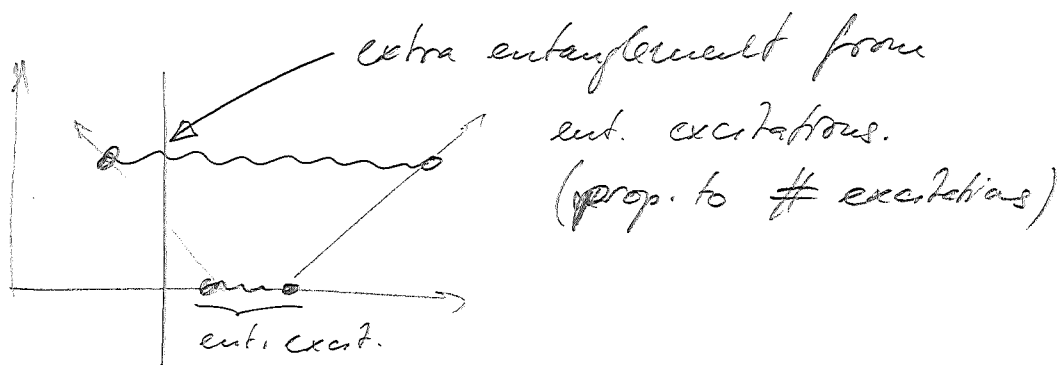 extra entanglement from
ent. excitations.
(prop. to # excitations)
ent. excit.